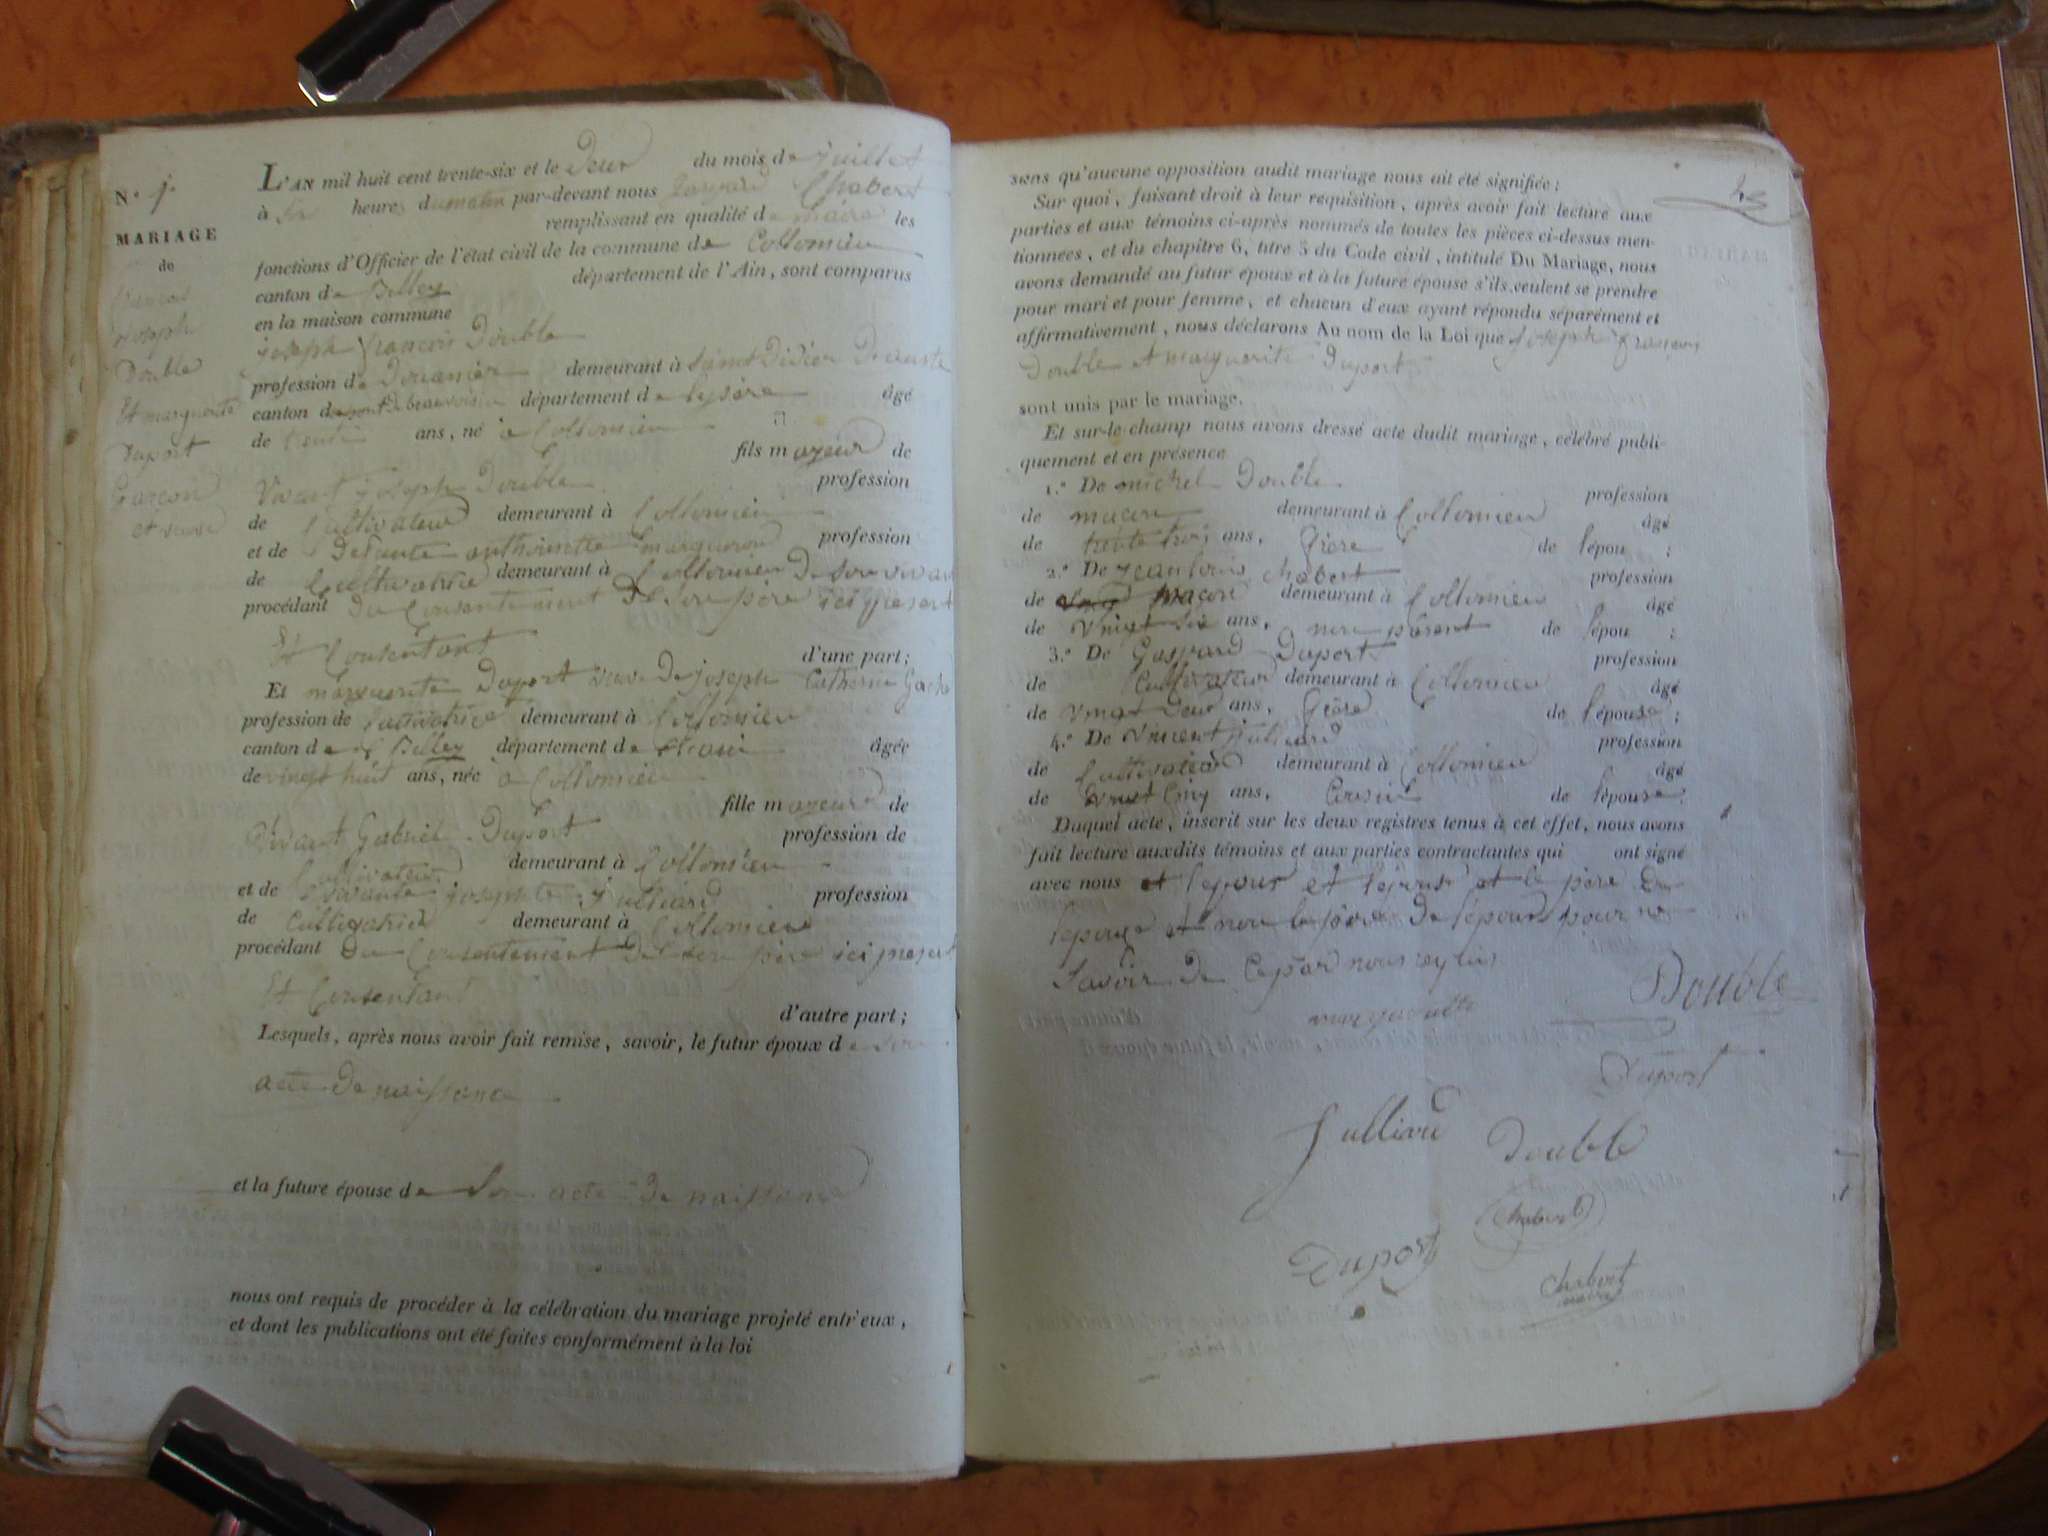 N.° 1.
MARIAGE
de
françois
joseph
Double
Et marguerite
Duport
Garcon
et veuve
L'AN mil huit cent trente-six et le Deux du mois de juillet
à six heures du matin par-devant nous Gaspard Chabert
remplissant en qualité de maire les
fonctions d'Officier de l'état civil de la commune de Collomieu
canton de Belley département de l'Ain, sont comparus
en la maison commune
joseph françois Double
profession de Douanier demeurant à Saint Didier
canton de pont de beauvoisin département de Lysère âgé
de trente ans, né à Collomieu
fils mayeur de
Vivant joseph Double profession
de Cultivateur demeurant à Collomieu
et de Defunte anthoinette profession
de Cultivatrice demeurant à Collomieu De son vivant
procédant du Consentement De son père ici present
Et Consentant d'une part;
Et marguerite Duport veuve De joseph Catherin
profession de Cultivatrice demeurant à Collomieu
canton de Belley département de âgée
de vingt huit ans, née à Collomieu
fille mayeure de
Vivant Gabriel Duport profession de
Cultivateur demeurant à Collomieu
et de Vivante josephte julliard profession
de Cultivatrice demeurant à Collomieu
procédant Du Consentement De son père ici present
Et Consentant d'autre part;
Lesquels, après nous avoir fait remise, savoir, le futur époux de son
acte De naissance
et la future épouse de Son acte De naissance
nous ont requis de procéder à la célébration du mariage projeté entr'eux,
et dont les publications ont été faites conformément à la loi
sans qu'aucune opposition audit mariage nous ait été signifiée;
Sur quoi, faisant droit à leur requisition, après avoir fait lecture aux
parties et aux témoins ci-après nommés de toutes les pièces ci-dessus men-
tionnées, et du chapitre 6, titre 5 du Code civil, intitulé Du Mariage, nous
avons demandé au futur époux et à la future épouse s'ils veulent se prendre
pour mari et pour femme, et chacun d'eux ayant répondu séparément et
affirmativement, nous déclarons Au nom de la Loi que joseph françois
Double et marguerite Duport
sont unis par le mariage.
Et sur-le-champ nous avons dressé acte dudit mariage, célébré publi-
quement et en présence
1.° De michel Double profession
de macon demeurant à Collomieu âgé
de trente trois ans, frère de l'épou ;
2.° De jean louis chabert profession
de macon demeurant à Collomieu âgé
de Vingt six ans, non parent de l'épou ;
3.° De Gaspard Duport profession
de Cultivateur demeurant à Collomieu âgé
de Vingt Deux ans, frère de l'épouse ;
4.° De Vincent julliard profession
de Cultivateur demeurant à Collomieu âgé
de Vingt Cinq ans, Cousin de l'épouse.
Duquel acte, inscrit sur les deux registres tenus à cet effet, nous avons
fait lecture auxdits témoins et aux parties contractantes qui ont signé
avec nous et lepoux et lepouse et le père De
lepouse et non le père De lepoux pour ne
Savoir De
Double
marguerite
Duport
Julliard
Double
Chabert
Duport
Chabert
maire